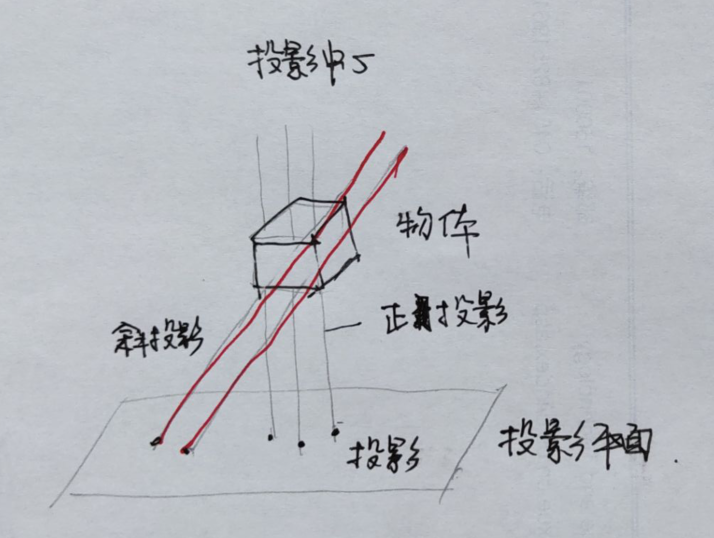 投影中心
物体
正投影
斜投影
投影
投影平面.